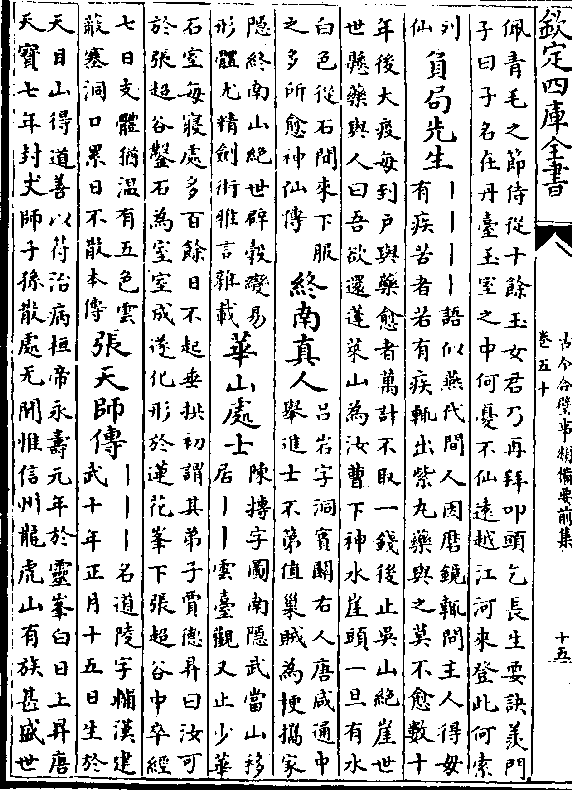 欽定四庫全書
古今合璧事類備要前集
卷五十
十五
佩青毛之節侍從十餘玉女君乃再拜叩頭乞長生要訣羨門
子曰子名在丹臺玉室之中何憂不仙遠越江河來登此何索
列
仙
負局先生
｜｜｜｜語似燕代間人因磨鏡輒問主人得毋
有疾苦者若有疾輒出紫丸藥與之莫不愈數十
年後大疫每到戶與藥愈者萬計不取一錢後止吳山絕崖世
世懸藥與人曰吾欲還蓬萊山為汝曹下神水崖頭一旦有水
白色從石間來下服
之多所愈神仙傳
終南真人
呂岩字洞賓關右人唐咸通中
舉進士不第值巢賊為梗攜家
隱終南山絕世辟穀變易
形體尤精劍術雅言雜載
華山處士
陳摶字圖南隱武當山移
居｜｜雲臺觀又止少華
石室每寢處多百餘日不起垂拱初謂其弟子賈德昇曰汝可
於張超谷鑿石為室室成遂化形於蓮花峯下張超谷中卒經
七日支體猶温有五色雲
蔽塞洞口累日不散本傳
張天師傳
｜｜｜名道陵字輔漢建
武十年正月十五日生於
天目山得道善以符治病桓帝永壽元年於靈峯白日上昇唐
天寶七年封天師子孫散處无聞惟信州龍虎山有族甚盛世